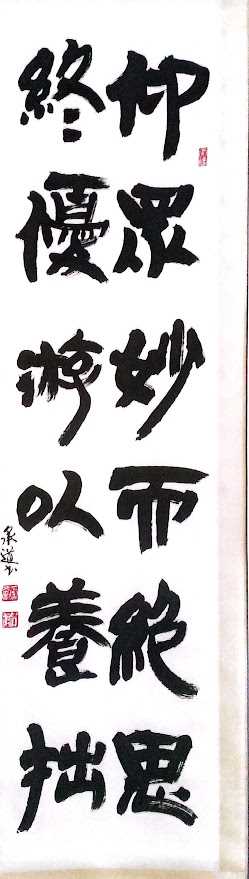 仰眾妙而絕思
終優游以養拙
承道书